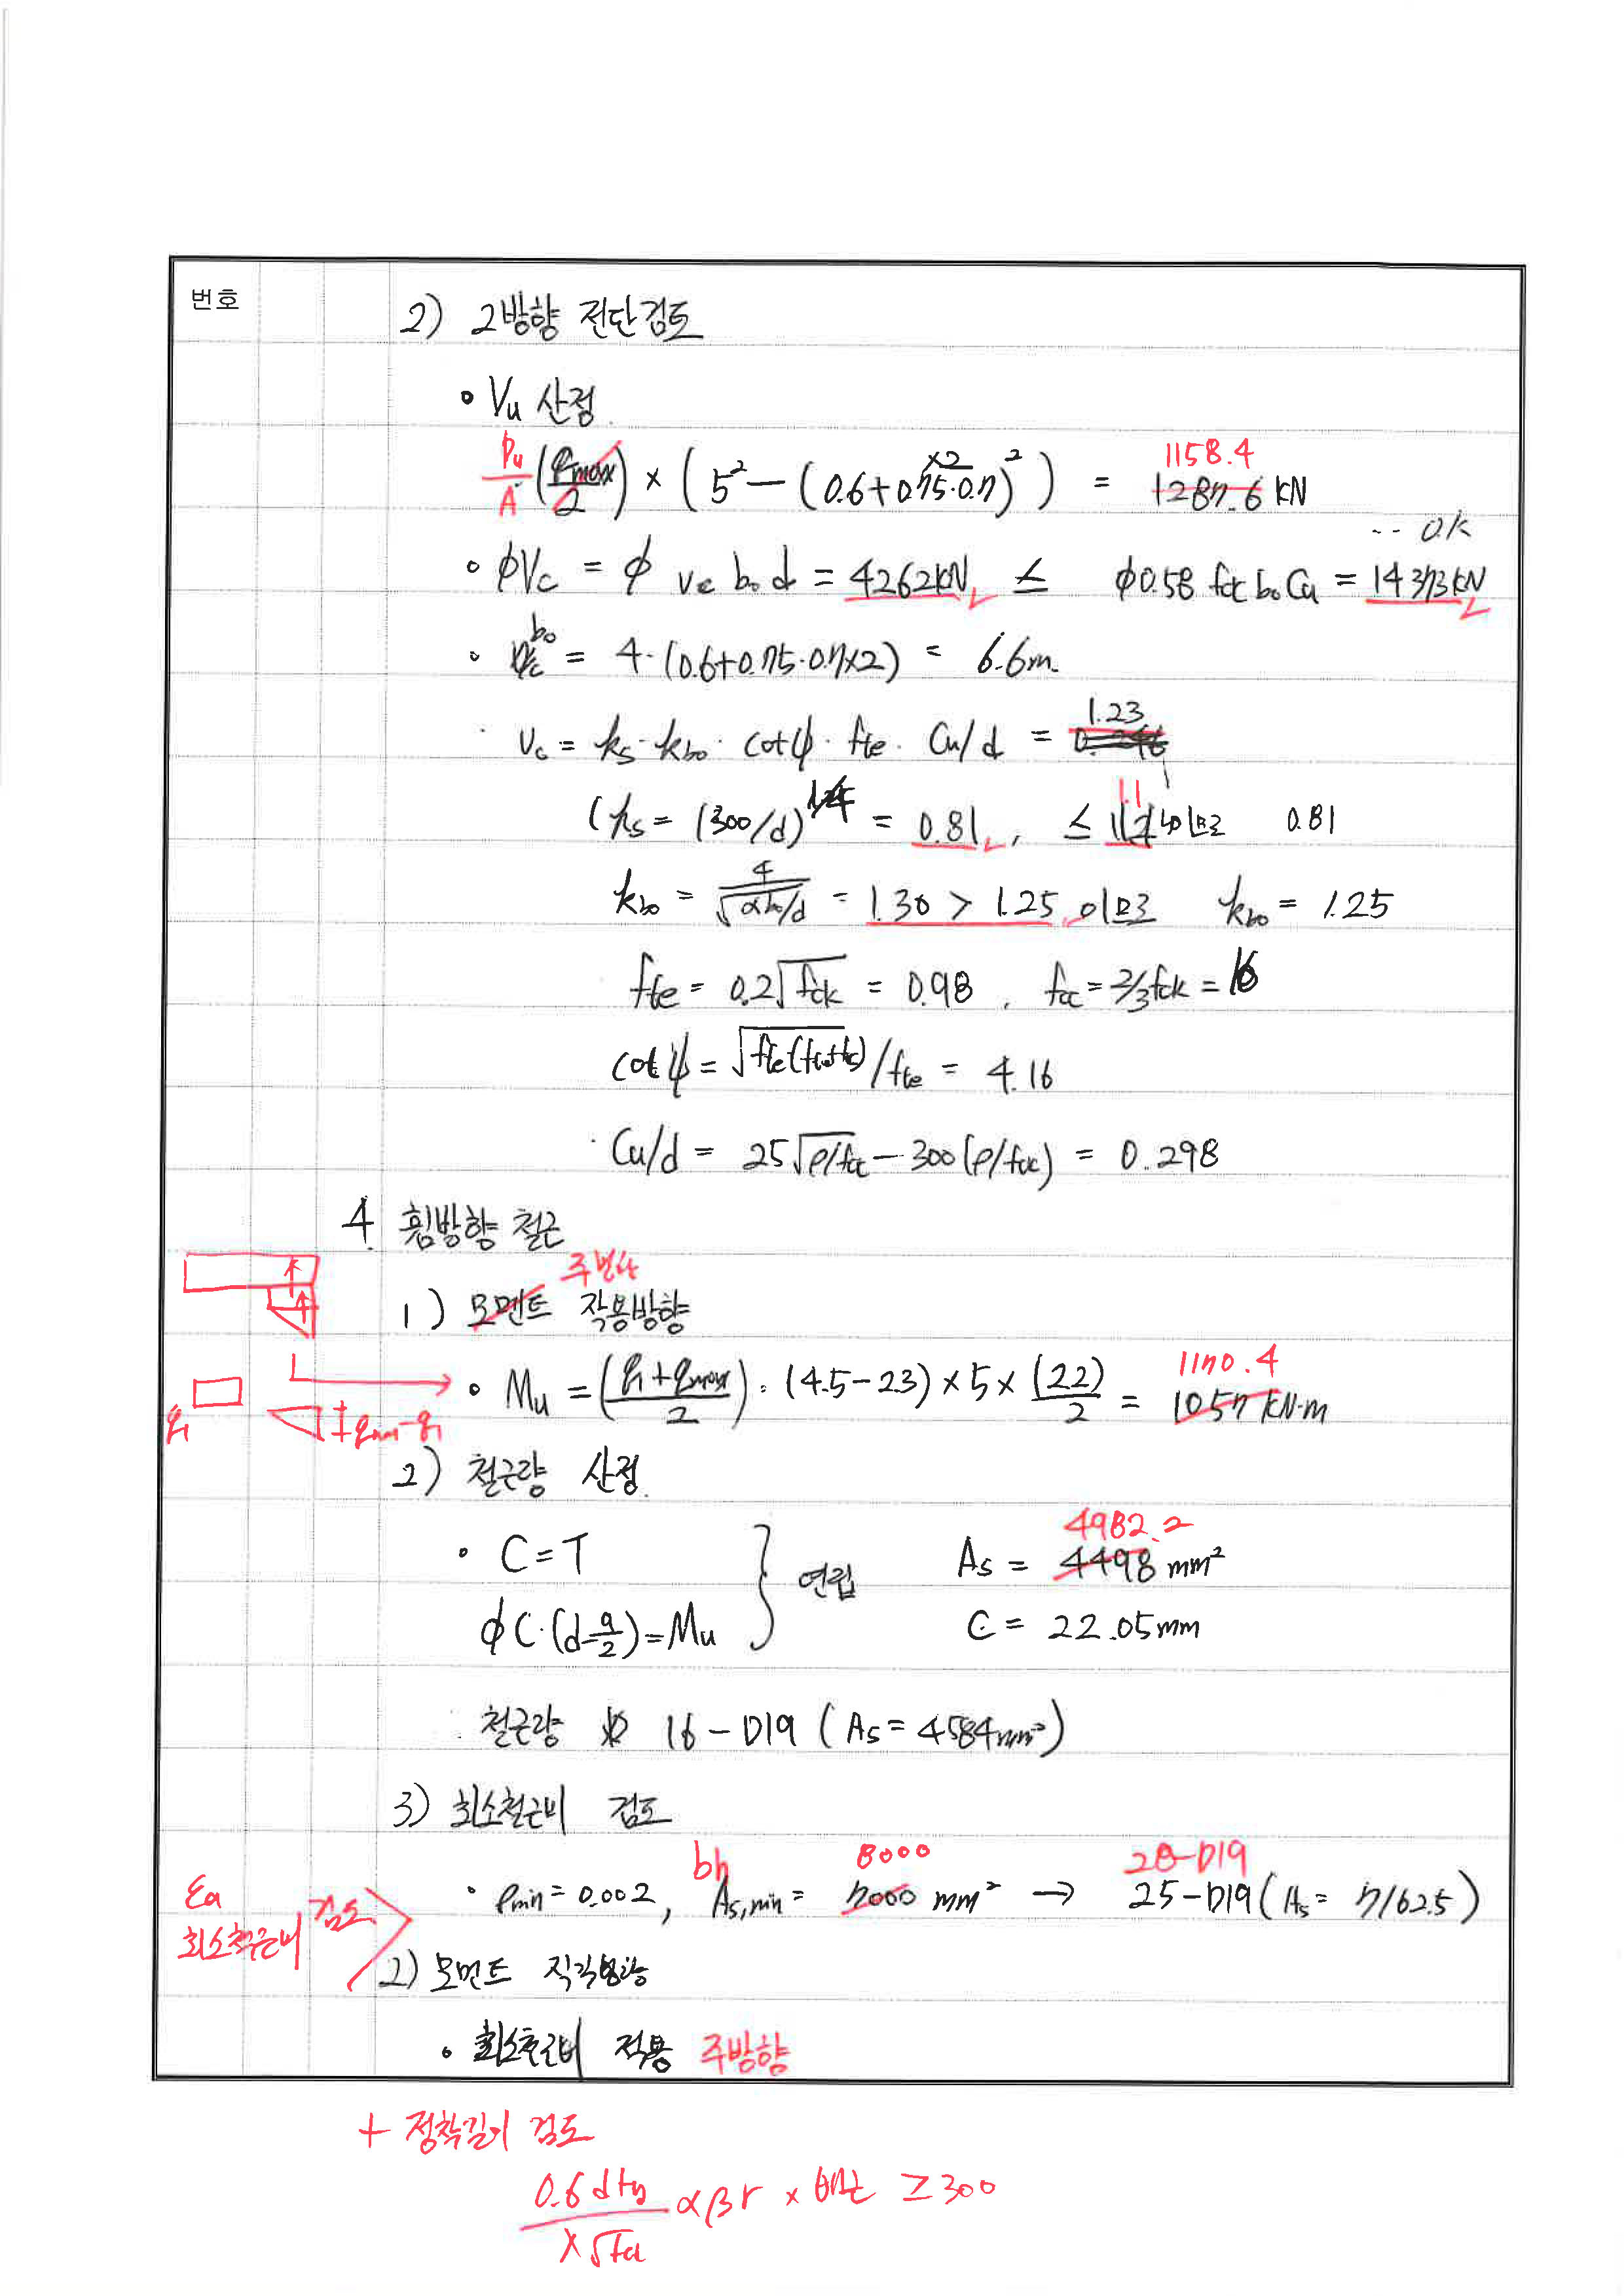 번호
2) 2방향 전단검토
• Vu 산정
Pu/A (qmax/2) × (5² - (0.6+0.75·0.7×2)²) = 1158.4 1287.6 kN
-- ok
• φVc = φ vc bo d = 4262kN ≤ φ0.58 fck bo Cu = 14373kN
• bo = 4·(0.6+0.75·0.7×2) = 6.6m.
· vc = ks·kbo·cotψ·fte·Cu/d = 1.23
(ks = (300/d)^ = 0.81, ≤ 1.1 이므로 0.81
kbo = 4/√(αbo/d) = 1.30 > 1.25 이므로 kbo = 1.25
fte = 0.2√fck = 0.98, fcc = 2/3fck = 16
cotψ = √fte(fte+fcc)/fte = 4.16
· Cu/d = 25√ρ/fcc - 300(ρ/fcc) = 0.298
4. 휨방향 철근
주변사
1) 모멘트 작용방향
• Mu = (q1+qmax/2)·(4.5-2.3)×5×(2.2)/2 = 1170.4 1057 kN·m
q1 + qmax-q1
2) 철근량 산정.
• C=T
φC·(d-a/2)=Mu } 연립
As = 4982.2 4498 mm²
C = 22.05mm
∴ 철근량 16-D19 (As=4584mm²)
3) 최소철근비 검토
• ρmin = 0.002, bh As,min = 8000 7000 mm² → 28-D19 25-D19 (As= 7162.5)
εa
최소철근비 검토
2) 모멘트 직각방향
• 최소철근비 적용 주방향
+ 정착길이 검토
0.6dfy/λ√fck αβγ × 배근 ≥ 300